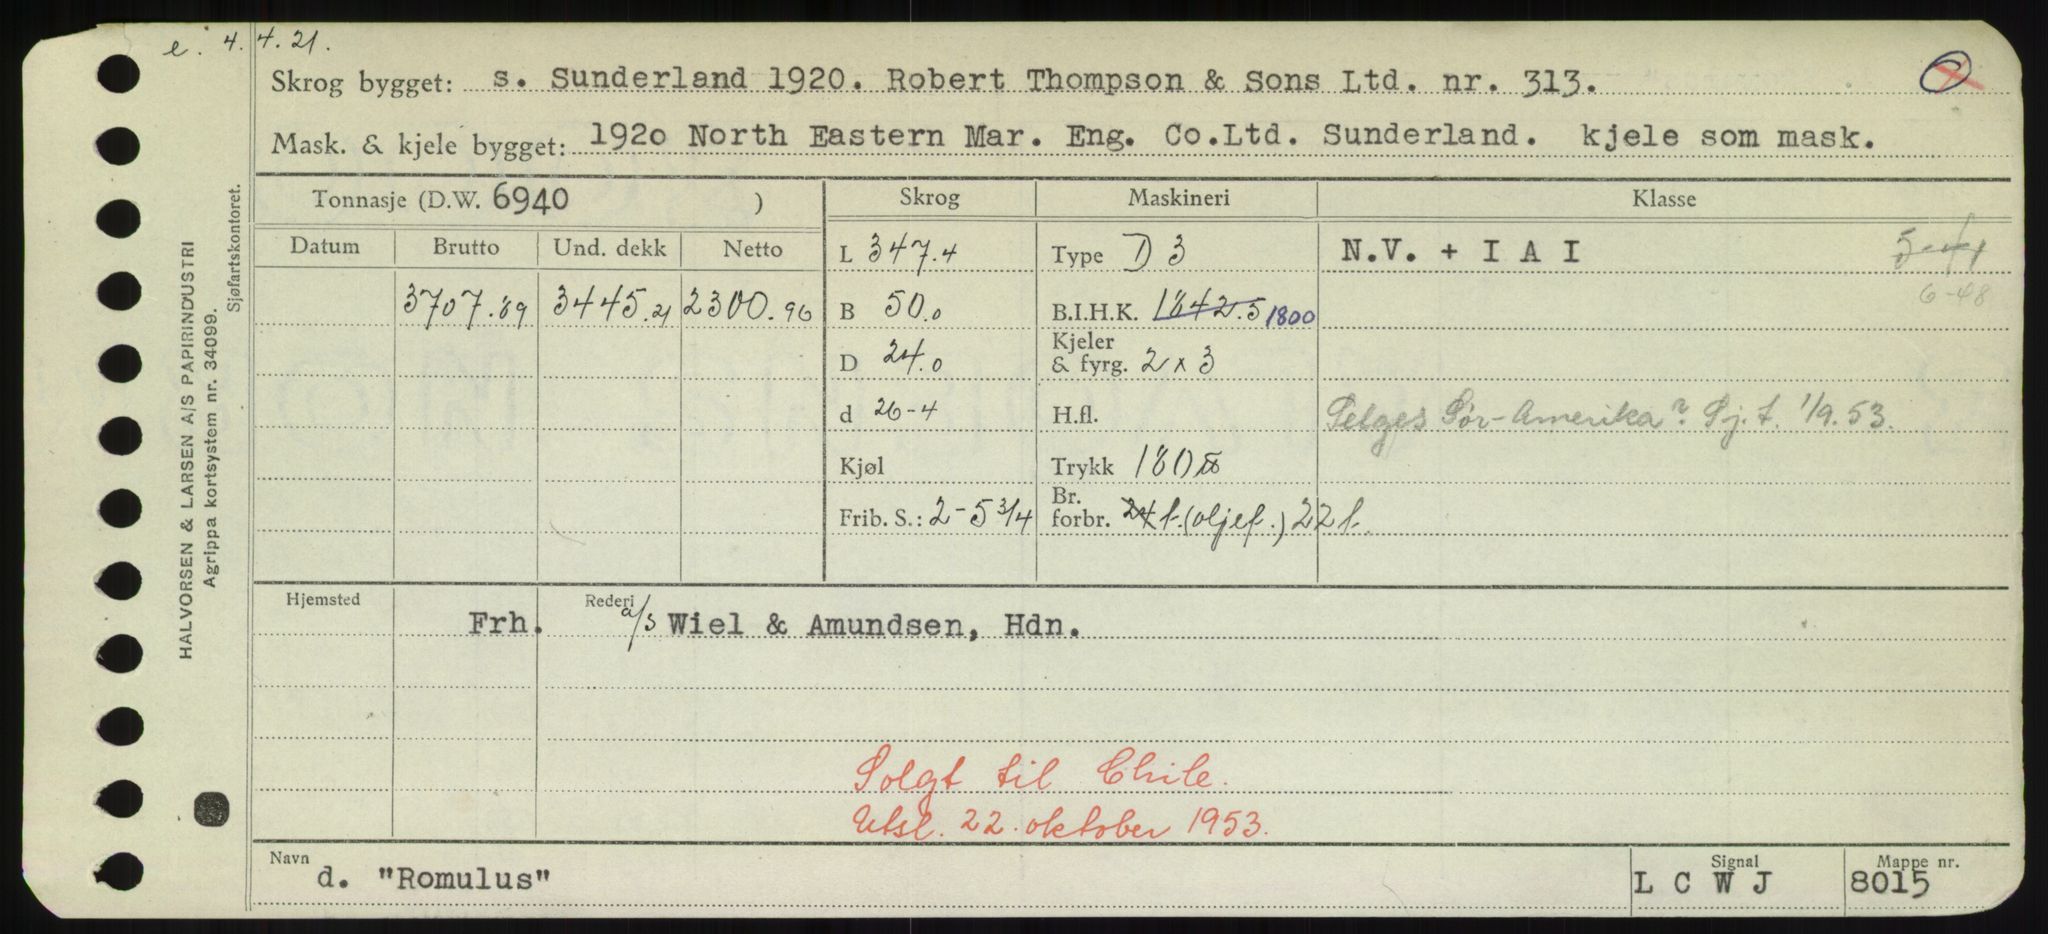 e. 4.4.21.
Skrog bygget: s. Sunderland 1920. Robert Thompson & Sons Ltd. nr. 313.
Mask. & kjele bygget: 1920 North Eastern Mar. Eng. Co.Ltd. Sunderland. kjele som mask.
HALVORSEN & LARSEN A/S PAPIRINDUSTRI
Agrippa kortsystem nr. 34099.
Sjøfartskontoret.
Tonnasje (D.W. 6940 ) Skrog Maskineri Klasse
Datum Brutto Und. dekk Netto L 347.4 Type D 3 N.V. + I A I 5-41
3707.89 3445.21 2300.96 B 50.0 B.I.H.K. 1842.5 1800 6-48
D 24.0 Kjeler & fyrg. 2 x 3
d 26-4 H.fl. Selges Sør-Amerika? Sj.t. 1/9.53.
Kjøl Trykk 180
Frib. S.: 2-5 3/4 Br. forbr. 24 t. (oljef.) 22 t.
Hjemsted Rederi
Frh. a/s Wiel & Amundsen, Hdn.
Solgt til Chile.
Utsl. 22. oktober 1953.
Navn Signal Mappe nr.
d. "Romulus" L C W J 8015